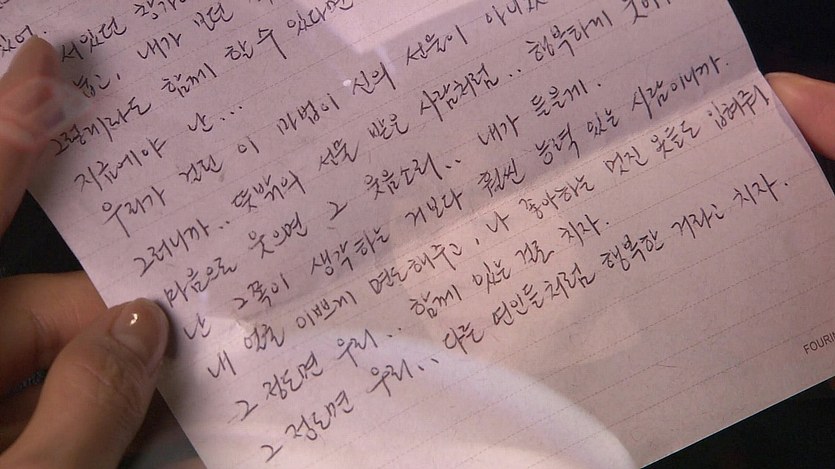 있어.
서있던
내가
그렇게라도 함께 할 수 있다면
지금에야 난...
우리가 걸린 이 마법이 신의 선물이 아니었
그러니까.. 뜻밖의 선물 받은 사람처럼.. 행복하게
마음으로 웃으면 그 웃음소리.. 내가 들을게.
난 그쪽이 생각하는 거보다 훨씬 능력 있는 사람이니까.
내 얼굴 이쁘게 면도해주고, 나 좋아하는 멋진 옷들도 입혀줘
그 정도면 우리.. 함께 있는 걸로 치자.
그 정도면 우리.. 다른 연인들처럼 행복한 거라고 치자.